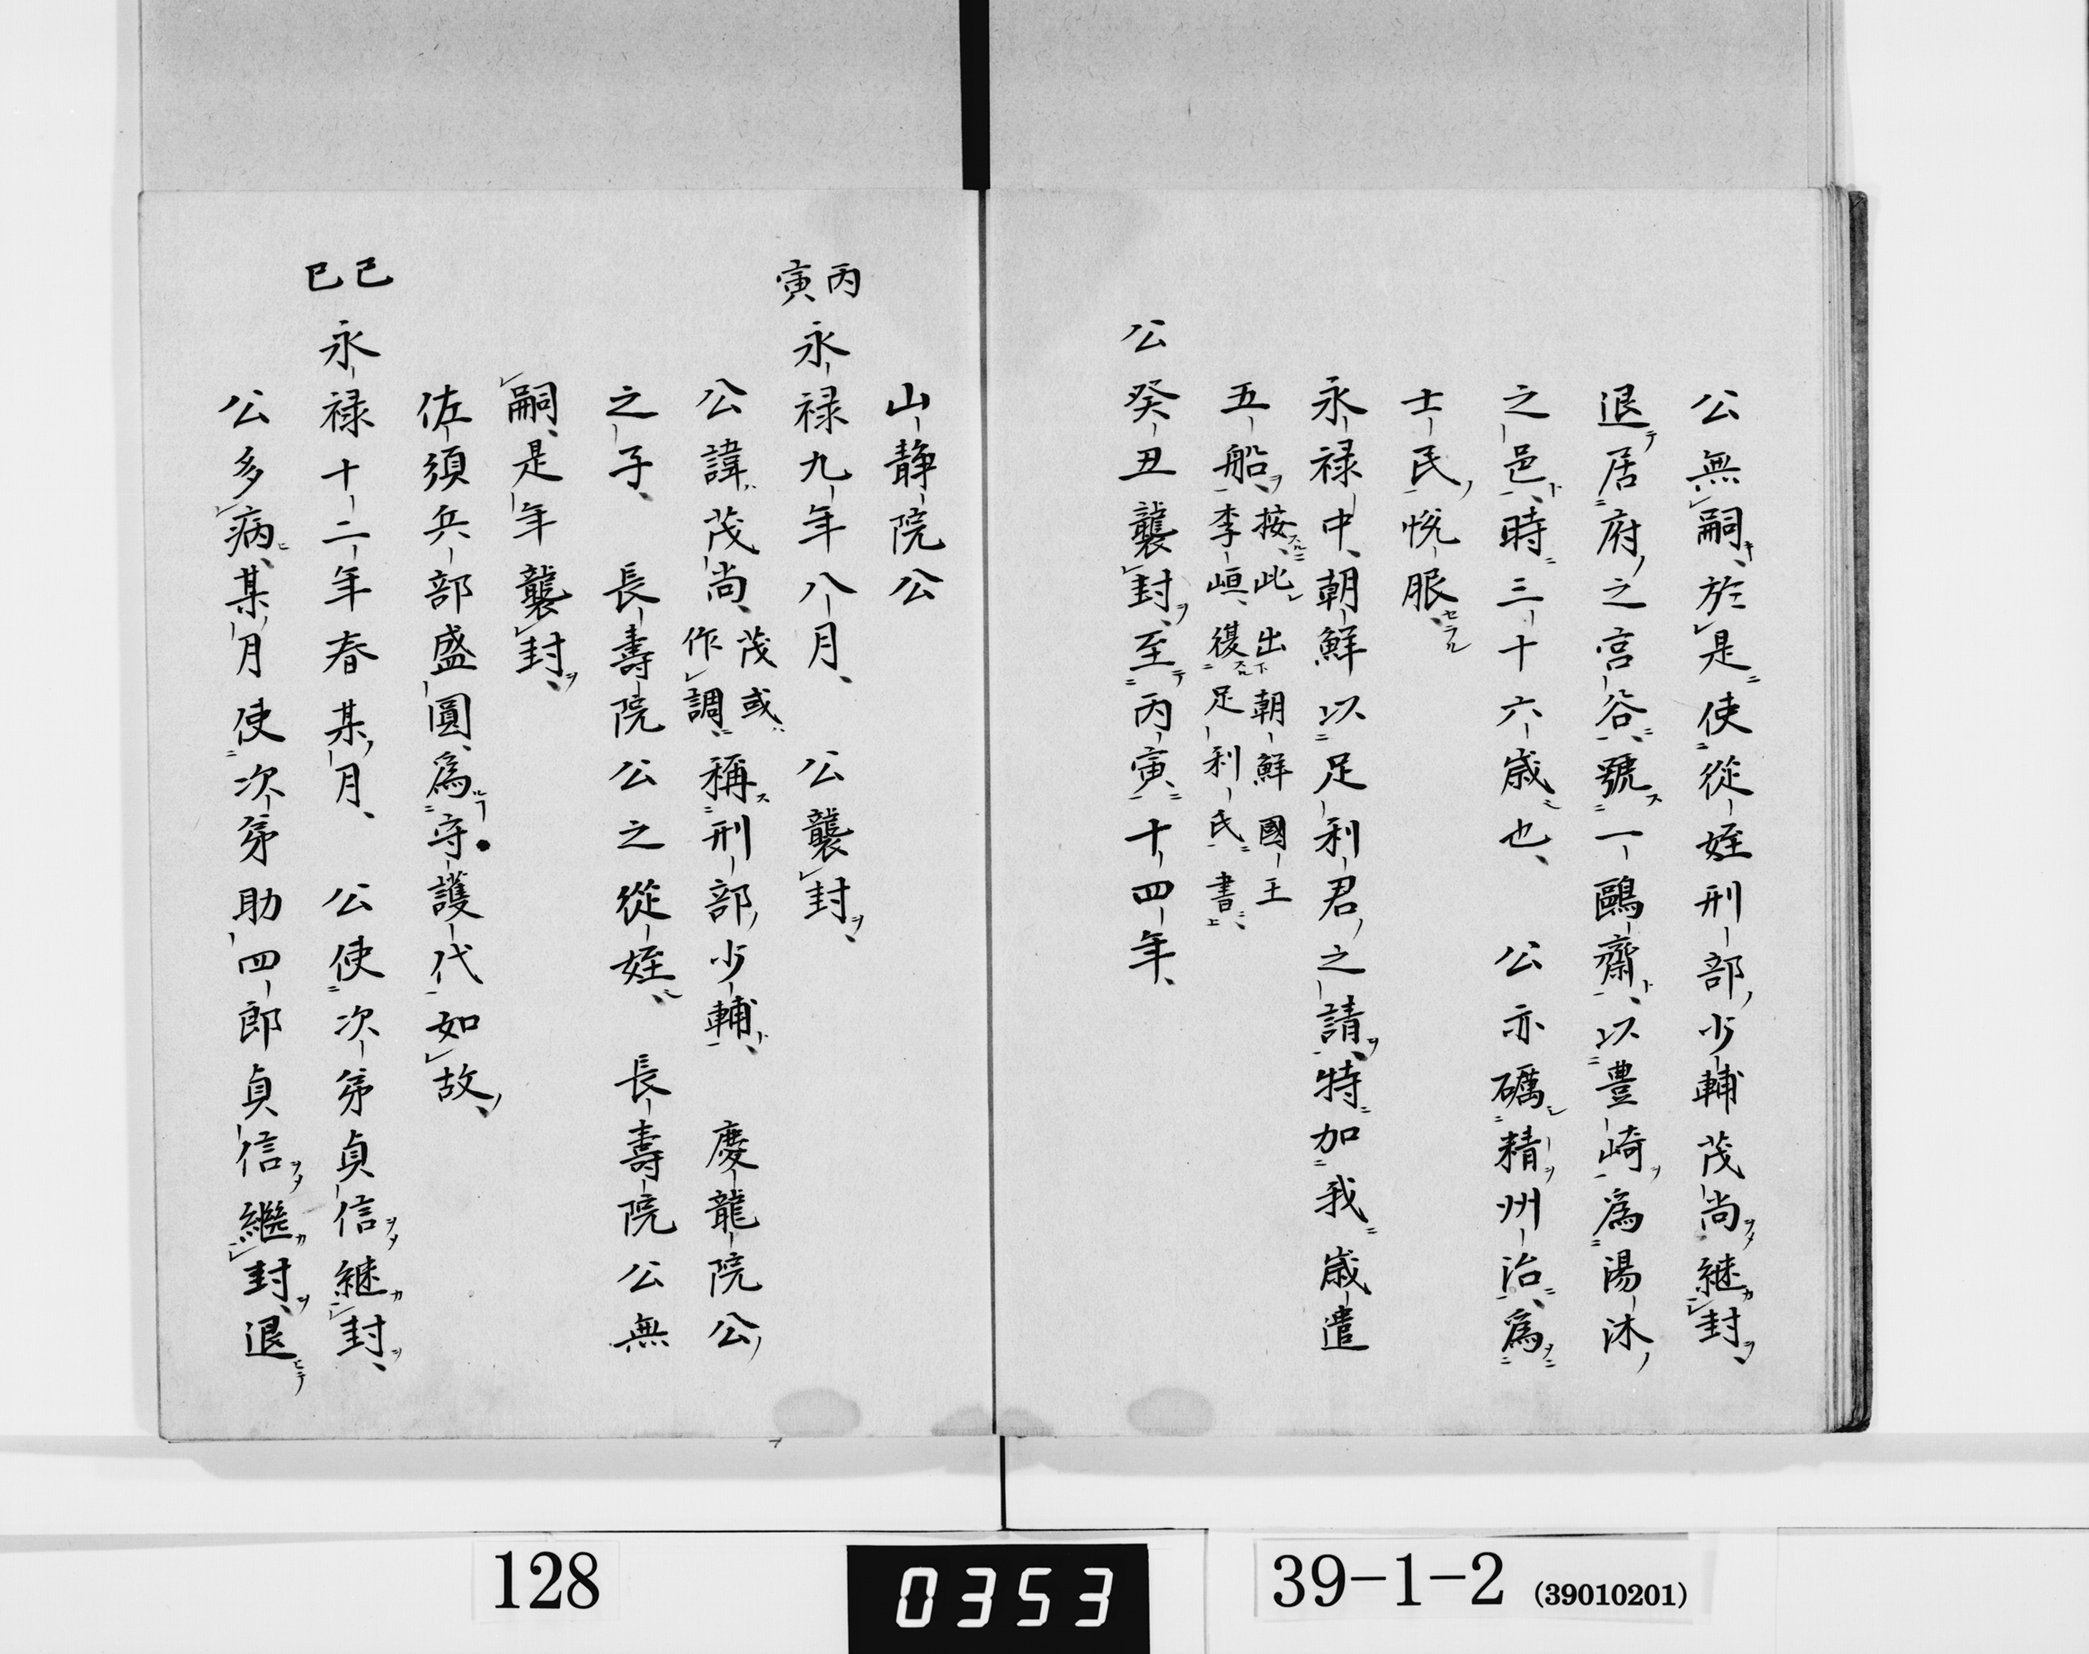 公無嗣、於是使從姪刑部少輔茂尚継封、
退居府之宮谷、號一鷗齋、以豊崎為湯沐
之邑、時三十六歳也、公亦礪精州治、為
士民悅服、
永禄中、朝鮮以足利君之請、特加我歳遣
五船、按、此出朝鮮國王
李峘、復足利氏書、
公癸丑襲封、至丙寅十四年、
山静院公
丙寅
永禄九年八月、公襲封、
公諱茂尚、茂或
作調、稱刑部少輔、慶龍院公
之子、長壽院公之從姪、長壽院公無
嗣、是年襲封、
佐須兵部盛圓、為守護代如故、
己巳
永禄十二年春某月、公使次弟貞信継封、
公多病、某月使次弟助四郎貞信繼封、退
128
0353
39-1-2 (39010201)